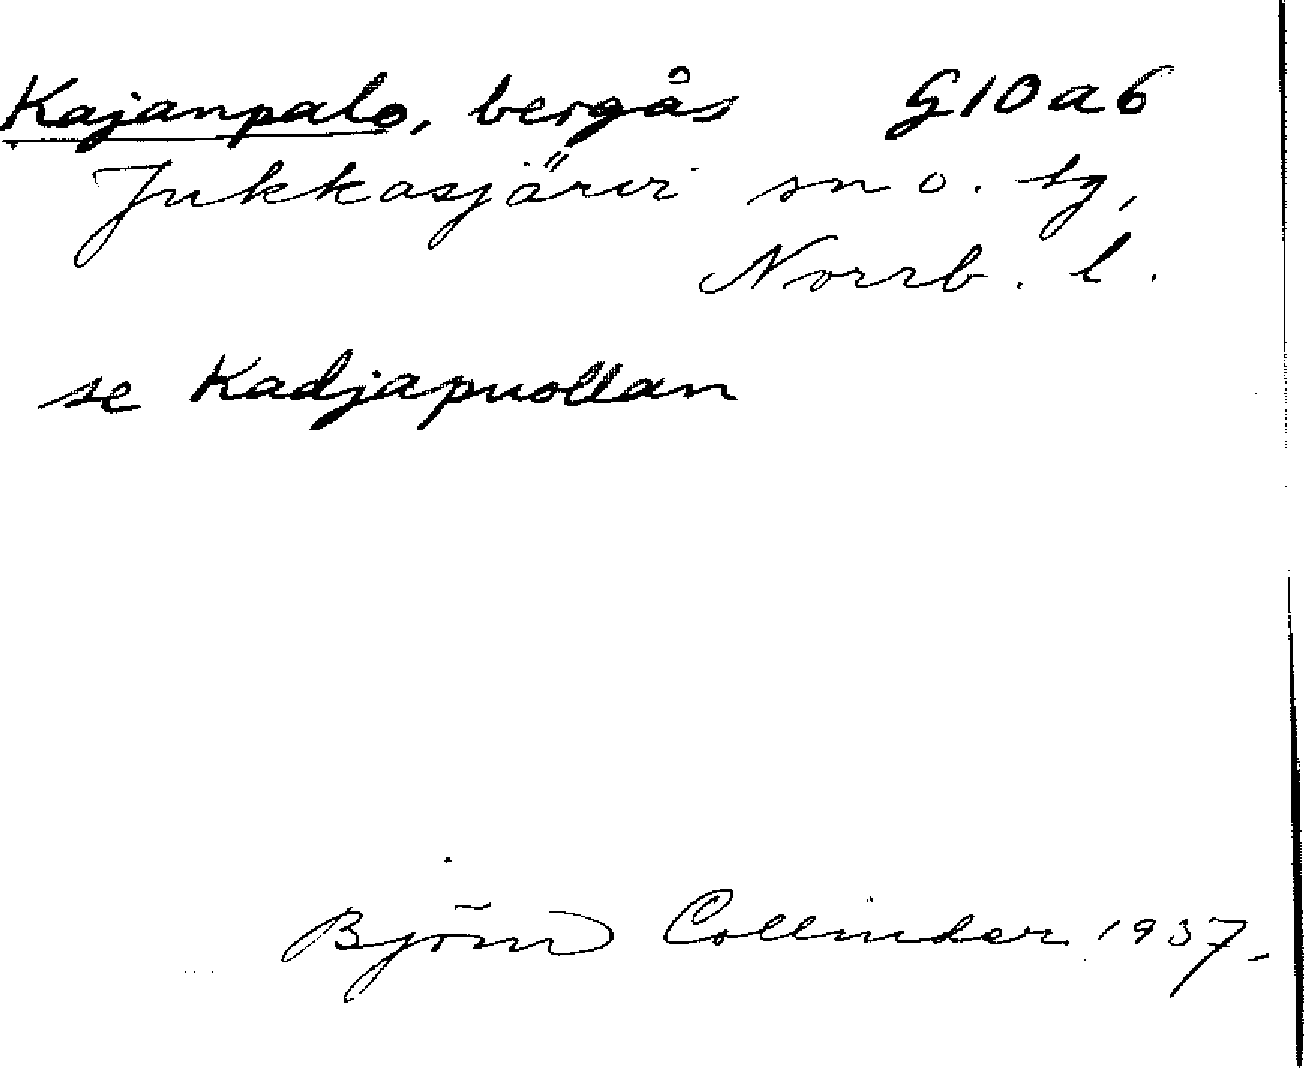 Kajanpalo, bergås G10a6
Jukkasjärvi sn o. tg,
Norrb. l.
se Kadjapuollan
Björn Collinder 1937.